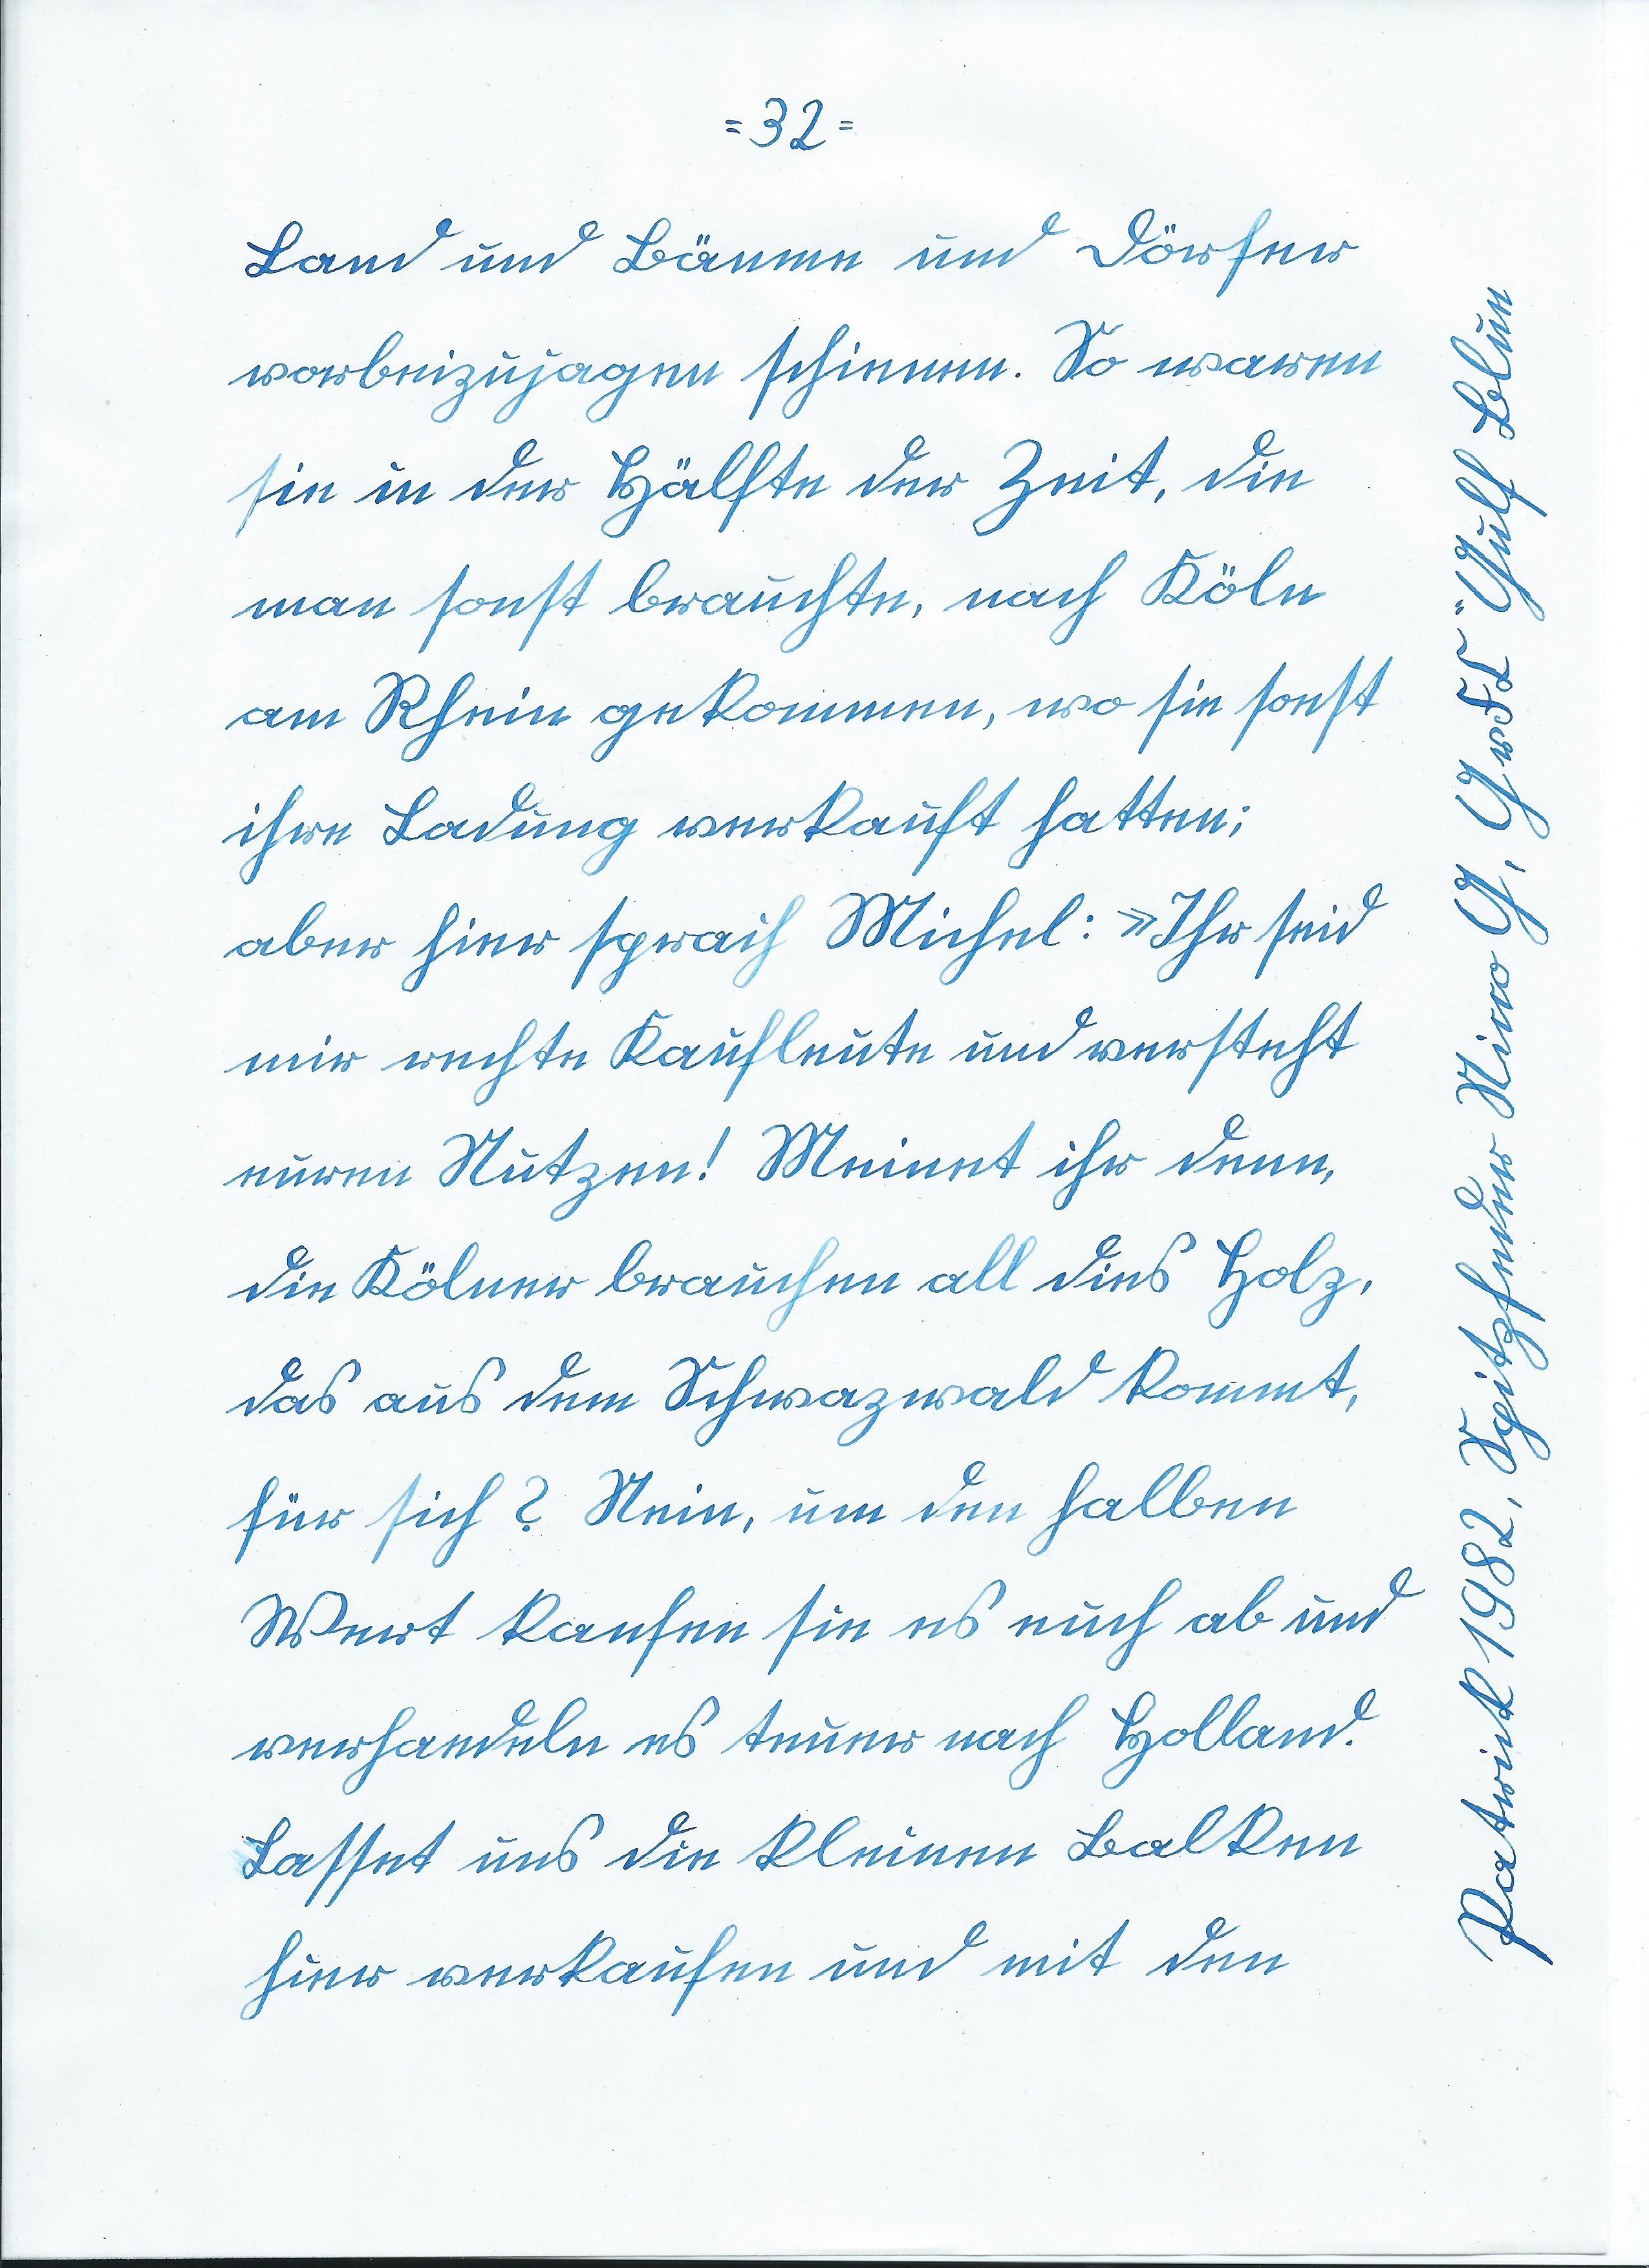 =32=
Land und Bäume und Dörfer
vorbeizujagen schienen. So waren
sie in der Hälfte der Zeit, die
man sonst brauchte, nach Köln
am Rhein gekommen, wo sie sonst
ihre Ladung verkauft hatten;
aber hier sprach Michel: »Ihr seid
mir rechte Kaufleute und versteht
euren Nutzen! Meinet ihr denn,
die Kölner brauchen all dies Holz,
das aus dem Schwazwald kommt,
für sich? Nein, um den halben
Wert kaufen sie es euch ab und
verhandeln es teuer nach Holland.
Lasset uns die kleinen Balken
hier verkaufen und mit den
Patrick 1982, Spitzfeder Nino G,